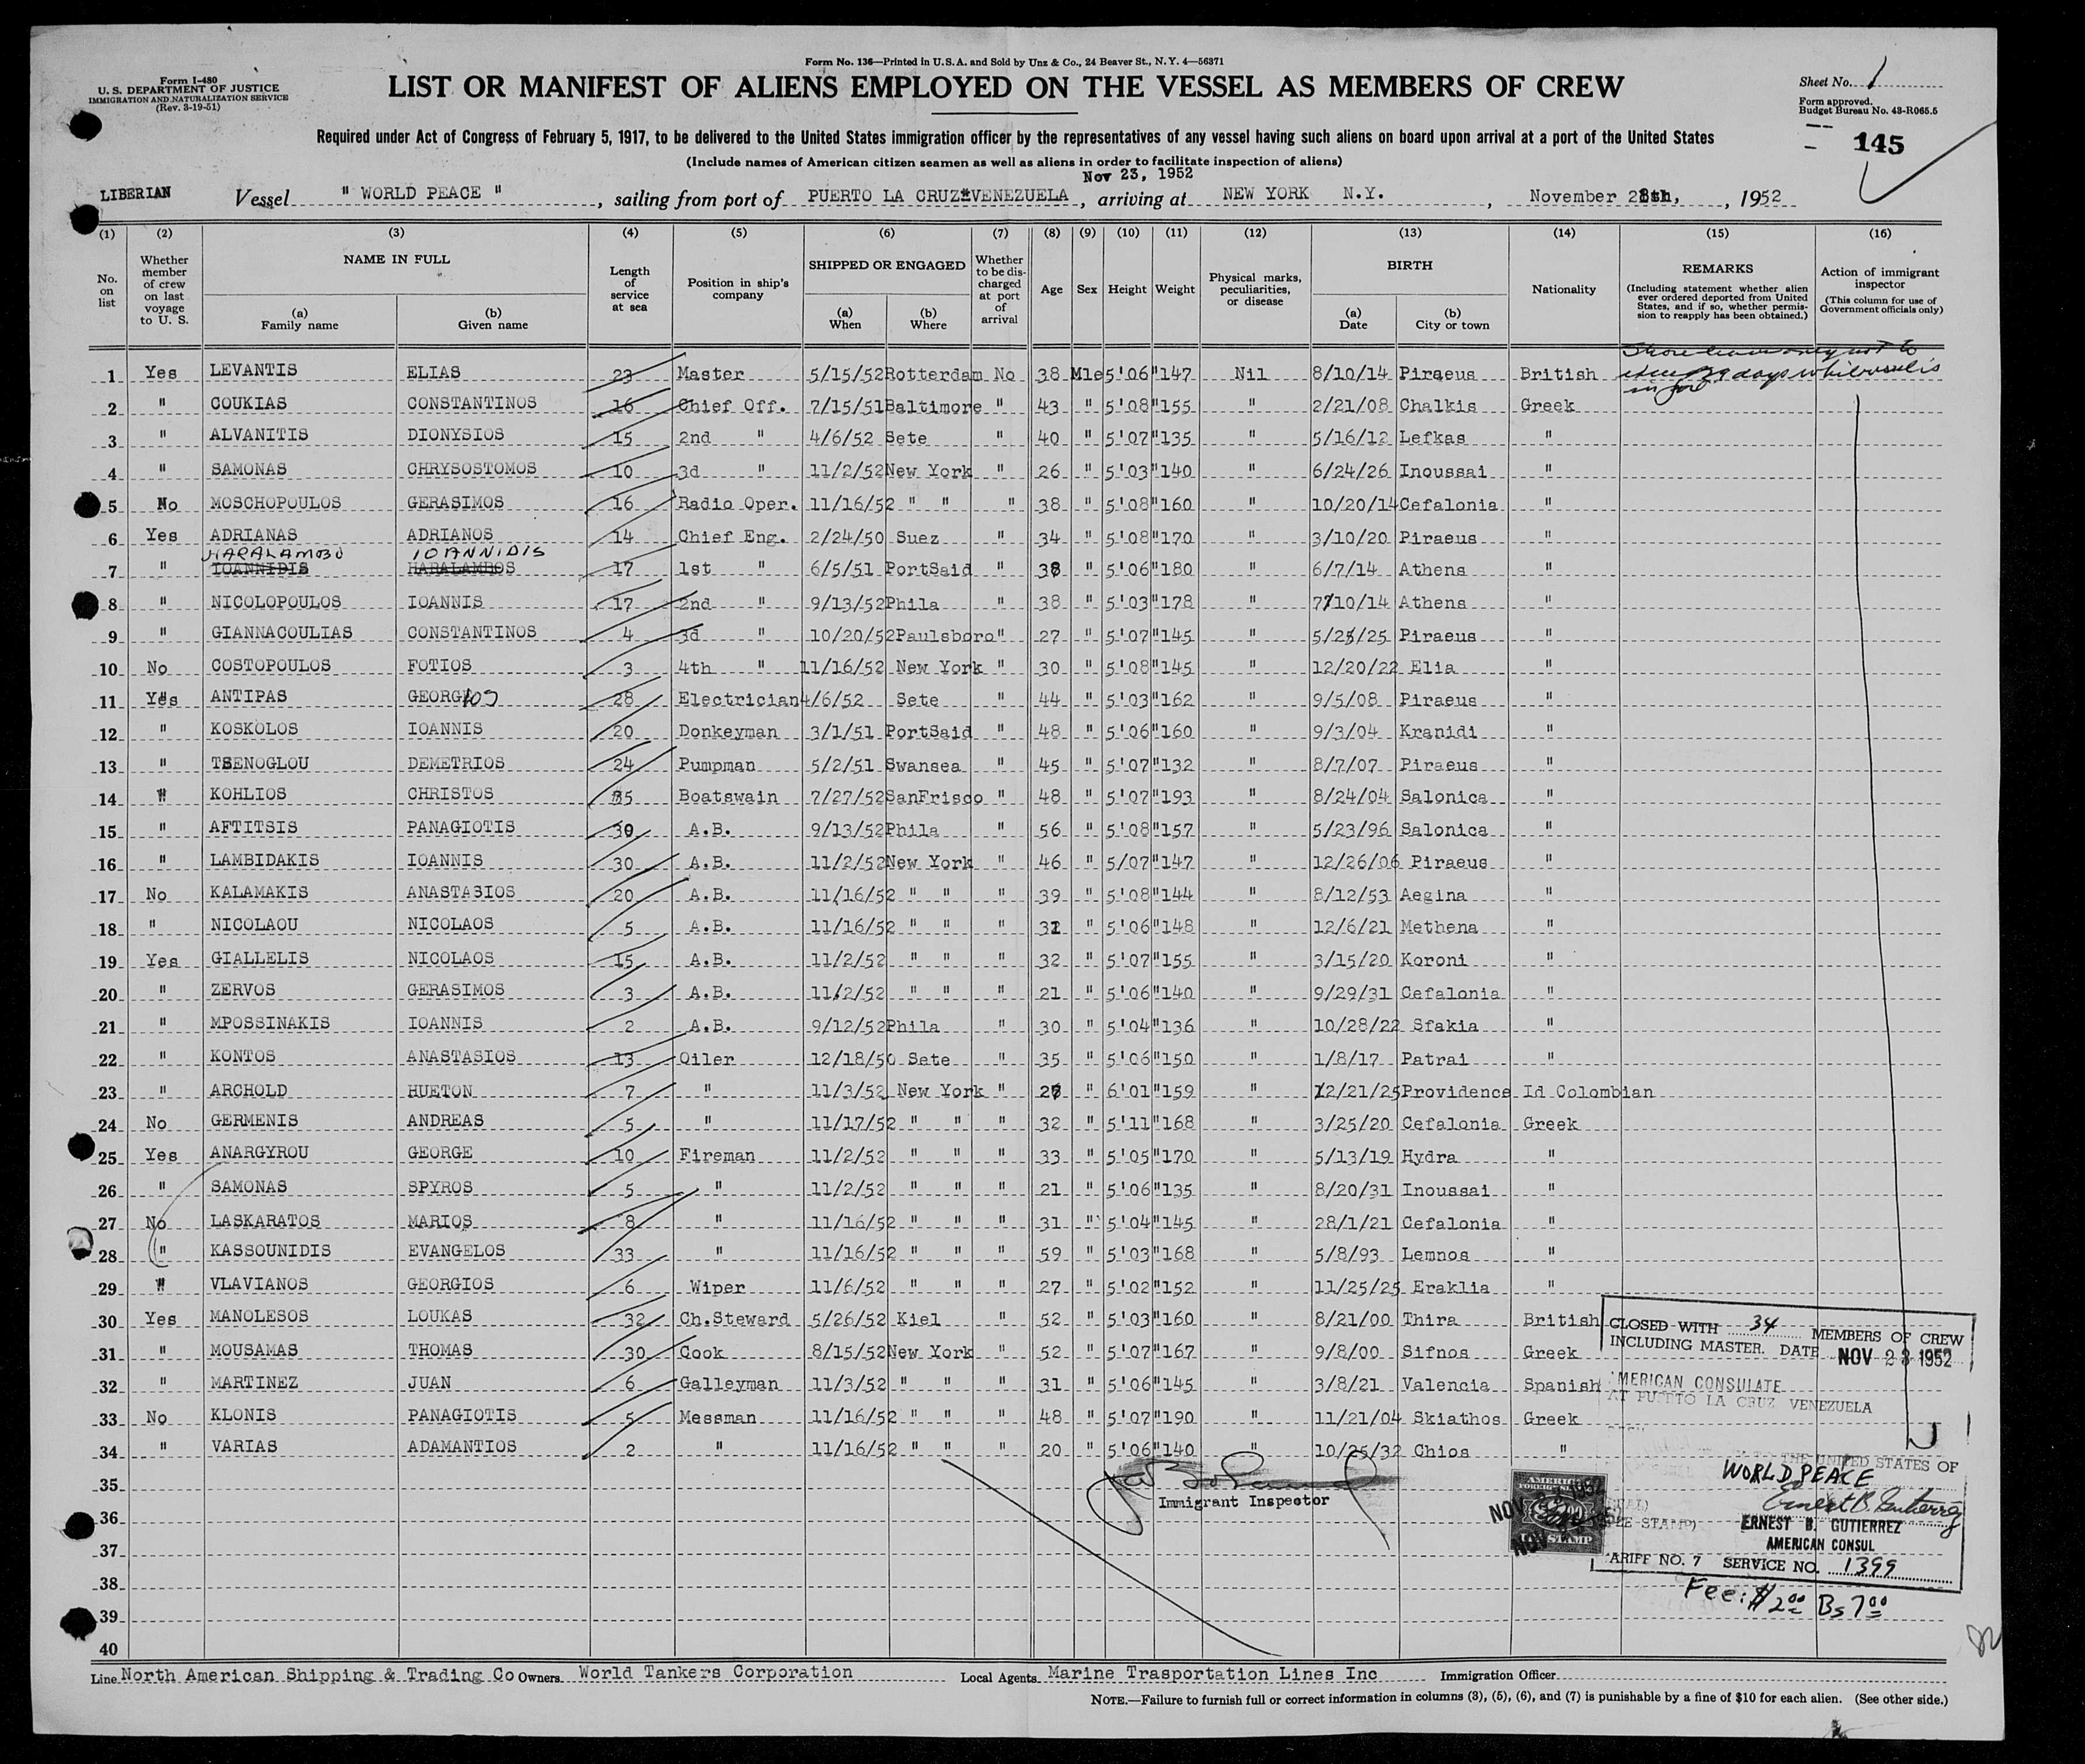 Form No. 136—Printed in U.S.A. and Sold by Unz & Co., 24 Beaver St., N.Y. 4—56371
Form I-480
U. S. DEPARTMENT OF JUSTICE
IMMIGRATION AND NATURALIZATION SERVICE
(Rev. 3-19-51)
LIST OR MANIFEST OF ALIENS EMPLOYED ON THE VESSEL AS MEMBERS OF CREW
Sheet No. 1
Form approved.
Budget Bureau No. 43-R065.5
145
Required under Act of Congress of February 5, 1917, to be delivered to the United States immigration officer by the representatives of any vessel having such aliens on board upon arrival at a port of the United States
(Include names of American citizen seamen as well as aliens in order to facilitate inspection of aliens)
Nov 23, 1952
LIBERIAN Vessel " WORLD PEACE " , sailing from port of PUERTO LA CRUZ VENEZUELA , arriving at NEW YORK N.Y. , November , 1952
(1) (2) (3) (4) (5) (6) (7) (8) (9) (10) (11) (12) (13) (14) (15) (16)
No. on list
Whether member of crew on last voyage to U. S.
NAME IN FULL
(a) Family name
(b) Given name
Length of service at sea
Position in ship's company
SHIPPED OR ENGAGED
(a) When
(b) Where
Whether to be discharged at port of arrival
Age Sex Height Weight
Physical marks, peculiarities, or disease
BIRTH
(a) Date
(b) City or town
Nationality
REMARKS
(Including statement whether alien ever ordered deported from United States, and if so, whether permission to reapply has been obtained.)
Action of immigrant inspector
(This column for use of Government officials only)
1 Yes LEVANTIS ELIAS 23 Master 5/15/52 Rotterdam No 38 Mle 5'06" 147 Nil 8/10/14 Piraeus British
2 " COUKIAS CONSTANTINOS 16 Chief Off. 7/15/51 Baltimore " 43 " 5'08" 155 " 2/21/08 Chalkis Greek
3 " ALVANITIS DIONYSIOS 15 2nd " 4/6/52 Sete " 40 " 5'07" 135 " 5/16/12 Lefkas "
4 " SAMONAS CHRYSOSTOMOS 10 3d " 11/2/52 New York " 26 " 5'03" 140 " 6/24/26 Inoussai "
5 No MOSCHOPOULOS GERASIMOS 16 Radio Oper. 11/16/52 " " " 38 " 5'08" 160 " 10/20/14 Cefalonia "
6 Yes ADRIANAS ADRIANOS 14 Chief Eng. 2/24/50 Suez " 34 " 5'08" 170 " 3/10/20 Piraeus "
HARALAMBO IOANNIDIS
7 " IOANNIDIS HARALAMBOS 17 1st " 6/5/51 PortSaid " 38 " 5'06" 180 " 6/7/14 Athens "
8 " NICOLOPOULOS IOANNIS 17 2nd " 9/13/52 Phila " 38 " 5'03" 178 " 7/10/14 Athens "
9 " GIANNACOULIAS CONSTANTINOS 4 3d " 10/20/52 Paulsboro " 27 " 5'07" 145 " 5/25/25 Piraeus "
10 No COSTOPOULOS FOTIOS 3 4th " 11/16/52 New York " 30 " 5'08" 145 " 12/20/22 Elia "
11 Yes ANTIPAS GEORGIOS 28 Electrician 4/6/52 Sete " 44 " 5'03" 162 " 9/5/08 Piraeus "
12 " KOSKOLOS IOANNIS 20 Donkeyman 3/1/51 PortSaid " 48 " 5'06" 160 " 9/3/04 Kranidi "
13 " TSENOGLOU DEMETRIOS 24 Pumpman 5/2/51 Swansea " 45 " 5'07" 132 " 8/7/07 Piraeus "
14 " KOHLIOS CHRISTOS 35 Boatswain 7/27/52 SanFrisco " 48 " 5'07" 193 " 8/24/04 Salonica "
15 " AFTITSIS PANAGIOTIS 30 A.B. 9/13/52 Phila " 56 " 5'08" 157 " 5/23/96 Salonica "
16 " LAMBIDAKIS IOANNIS 30 A.B. 11/2/52 New York " 46 " 5/07" 147 " 12/26/06 Piraeus "
17 No KALAMAKIS ANASTASIOS 20 A.B. 11/16/52 " " " 39 " 5'08" 144 " 8/12/53 Aegina "
18 " NICOLAOU NICOLAOS 5 A.B. 11/16/52 " " " 31 " 5'06" 148 " 12/6/21 Methena "
19 Yes GIALLELIS NICOLAOS 15 A.B. 11/2/52 " " " 32 " 5'07" 155 " 3/15/20 Koroni "
20 " ZERVOS GERASIMOS 3 A.B. 11/2/52 " " " 21 " 5'06" 140 " 9/29/31 Cefalonia "
21 " MPOSSINAKIS IOANNIS 2 A.B. 9/12/52 Phila " 30 " 5'04" 136 " 10/28/22 Sfakia "
22 " KONTOS ANASTASIOS 13 Oiler 12/18/50 Sete " 35 " 5'06" 150 " 1/8/17 Patrai "
23 " ARCHOLD HUETON 7 " 11/3/52 New York " " 6'01" 159 " 12/21/25 Providence Id Colombian
24 No GERMENIS ANDREAS 5 " 11/17/52 " " " 32 " 5'11" 168 " 3/25/20 Cefalonia Greek
25 Yes ANARGYROU GEORGE 10 Fireman 11/2/52 " " " 33 " 5'05" 170 " 5/13/19 Hydra "
26 " SAMONAS SPYROS 5 " 11/2/52 " " " 21 " 5'06" 135 " 8/20/31 Inoussai "
27 No LASKARATOS MARIOS 8 " 11/16/52 " " " 31 " 5'04" 145 " 28/1/21 Cefalonia "
28 " KASSOUNIDIS EVANGELOS 33 " 11/16/52 " " " 59 " 5'03" 168 " 5/8/93 Lemnos "
29 " VLAVIANOS GEORGIOS 6 Wiper 11/6/52 " " " 27 " 5'02" 152 " 11/25/25 Eraklia "
30 Yes MANOLESOS LOUKAS 32 Ch.Steward 5/26/52 Kiel " 52 " 5'03" 160 " 8/21/00 Thira British
31 " MOUSAMAS THOMAS 30 Cook 8/15/52 New York " 52 " 5'07" 167 " 9/8/00 Sifnos Greek
32 " MARTINEZ JUAN 6 Galleyman 11/3/52 " " " 31 " 5'06" 145 " 3/8/21 Valencia Spanish
33 No KLONIS PANAGIOTIS 5 Messman 11/16/52 " " " 48 " 5'07" 190 " 11/21/04 Skiathos Greek
34 " VARIAS ADAMANTIOS 2 " 11/16/52 " " " 20 " 5'06" 140 " 10/25/32 Chios "
35
36
37
38
39
40
CLOSED WITH 34 MEMBERS OF CREW
INCLUDING MASTER. DATE NOV 23 1952
MERICAN CONSULATE
AT PUERTO LA CRUZ VENEZUELA
TO THE UNITED STATES OF
WORLD PEACE
Ernest B. Gutierrez
ERNEST B. GUTIERREZ
AMERICAN CONSUL
ARIFF NO. 7 SERVICE NO. 1399
Fee: $2.00 Bs 7.00
Immigrant Inspector
Line North American Shipping & Trading Co Owners World Tankers Corporation Local Agents Marine Trasportation Lines Inc Immigration Officer
NOTE.—Failure to furnish full or correct information in columns (3), (5), (6), and (7) is punishable by a fine of $10 for each alien. (See other side.)